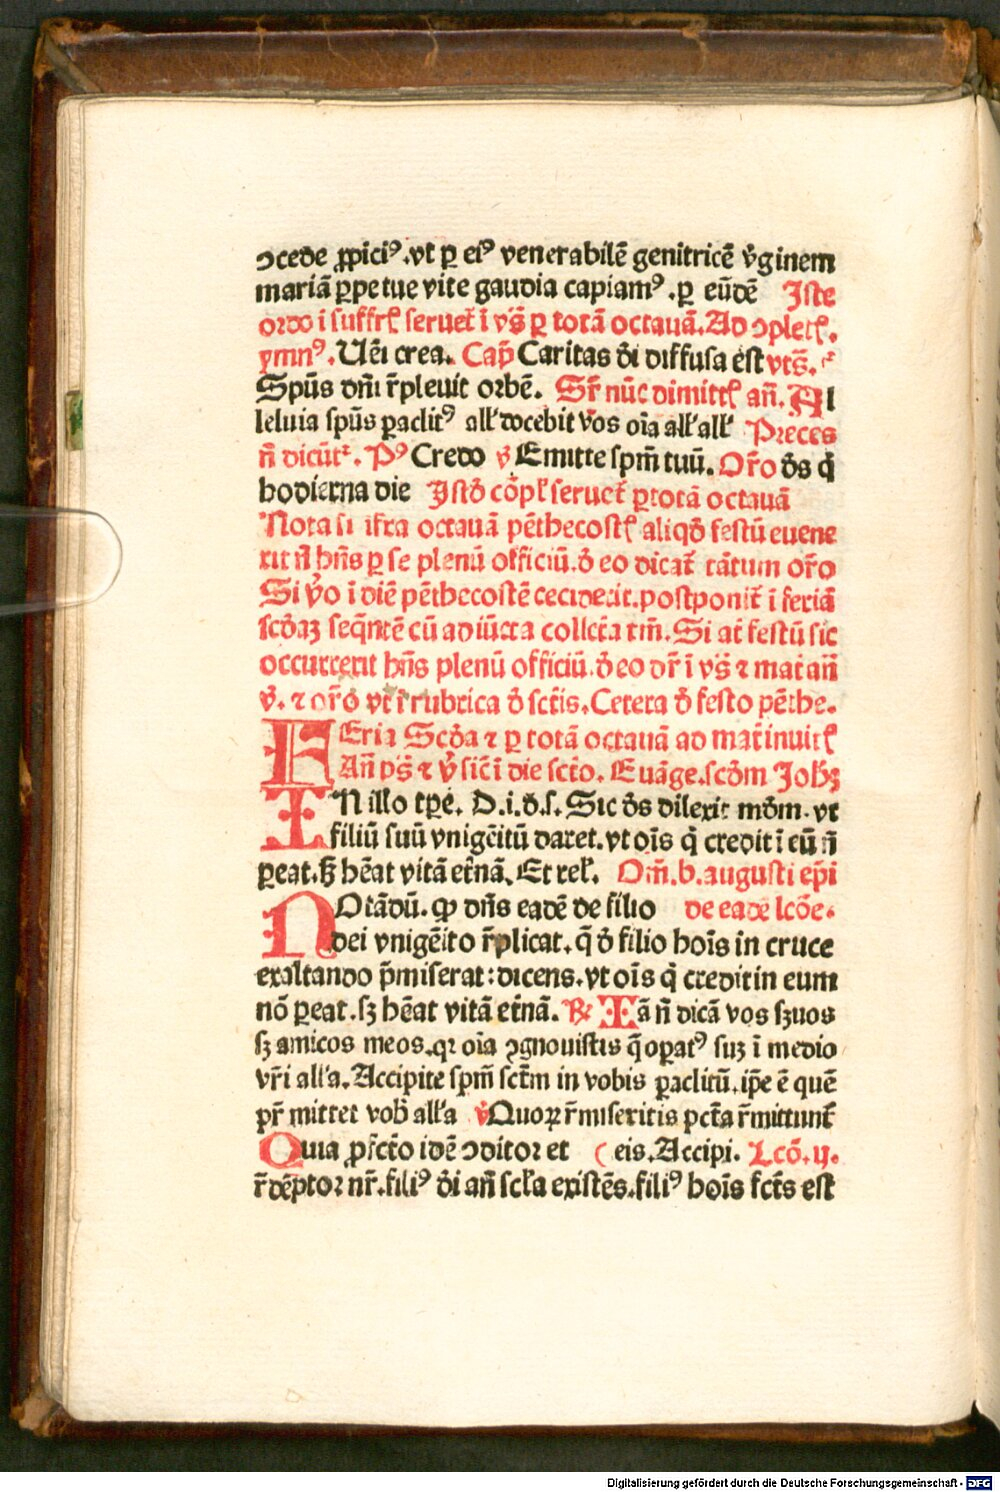 ↄcede ꝓpici⁹ .vt ꝑ ei⁹ venerabilē genitricē v̄ginem
mariā ꝑpetue vite gaudia capiam⁹ .ꝑ eūdē Iste
ordo ī suffrꝭ seruet̄ ī vs̄ ꝑ totā octauā. Ad ↄpletꝭ.
ymn⁹. Uēi crea. Cap̄ Caritas d̄i diffusa est vts̄.
Spūs dn̄i r̄pleuit orbē. Sr̄ nūc dimittꝭ an̄. Al
leluia spūs ꝑaclit⁹ all' docebit vos oīa all' all' Preces
n̄ dicūtᷣ. P⁹ Credo v̄ Emitte spm̄ tuū. Or̄o ds̄ q̄
hodierna die Istd̄ cōpl' seruet̄ ꝑ totā octauā
Nota si ifra octauā pēthecostꝭ aliqd̄ festū euene
rit n̄ hn̄s ꝑ se plenū officiū. d̄ eo dicat̄ tātum or̄o
Si v̄o ī diē pēthecostē ceciderit. postponit̄ ī feriā
scd̄aꝫ seq̄ntē cū adiūcta collcta tm̄. Si at̄ festū sic
occurrerit hn̄s plenū officiū. d̄ eo dr̄ ī vs̄ ⁊ mat̄ an̄
v̄. ⁊ or̄o vt ī rubrica d̄ sct̄is. Cetera d̄ festo pēthe.
FEria Scd̄a ⁊ ꝑ totā octauā ad mat̄ inuitꝭ
An̄ ps̄ ⁊ v̄ sic̄ ī die sct̄o. Euāge. scd̄m Joh̄ꝫ
IN illo tꝑe. D.i.d̄.s. Sic ds̄ dilexit md̄m. vt
filiū suū vnigēitū daret. vt oīs q̄ credit ī eū n̄
ꝑeat. ꝫ hēat vitā et̄nā. Et rel'. Om̄. b. augusti ep̄i
NOtādū. ꝙ dn̄s eadē de filio de eadē lcōe.
dei vnigēito r̄plicat. q̄ d̄ filio hoīs in cruce
exaltando p̄miserat: dicens. vt oīs q̄ credit in eum
nō ꝑeat. sꝫ hēat vitā et̄nā. ℟ Iā n̄ dicā vos s̄uos
sꝫ amicos meos. qꝛ oīa ↄgnouistis q̄ oꝑat⁹ suꝫ ī medio
vr̄i all'a. Accipite spm̄ sct̄m in vobis ꝑaclitū. ip̄e ē quē
pr̄ mittet vob̄ all'a v̄ Quoꝝ r̄miseritis pct̄a r̄mittunt̄
Quia ꝓfct̄o idē ↄditor et ( eis. Accipi. Lcō. ij.
r̄dēptor nr̄. fili⁹ d̄i an̄ scl'a existēs. fili⁹ hoīs fct̄s est
Digitalisierung gefördert durch die Deutsche Forschungsgemeinschaft - DFG